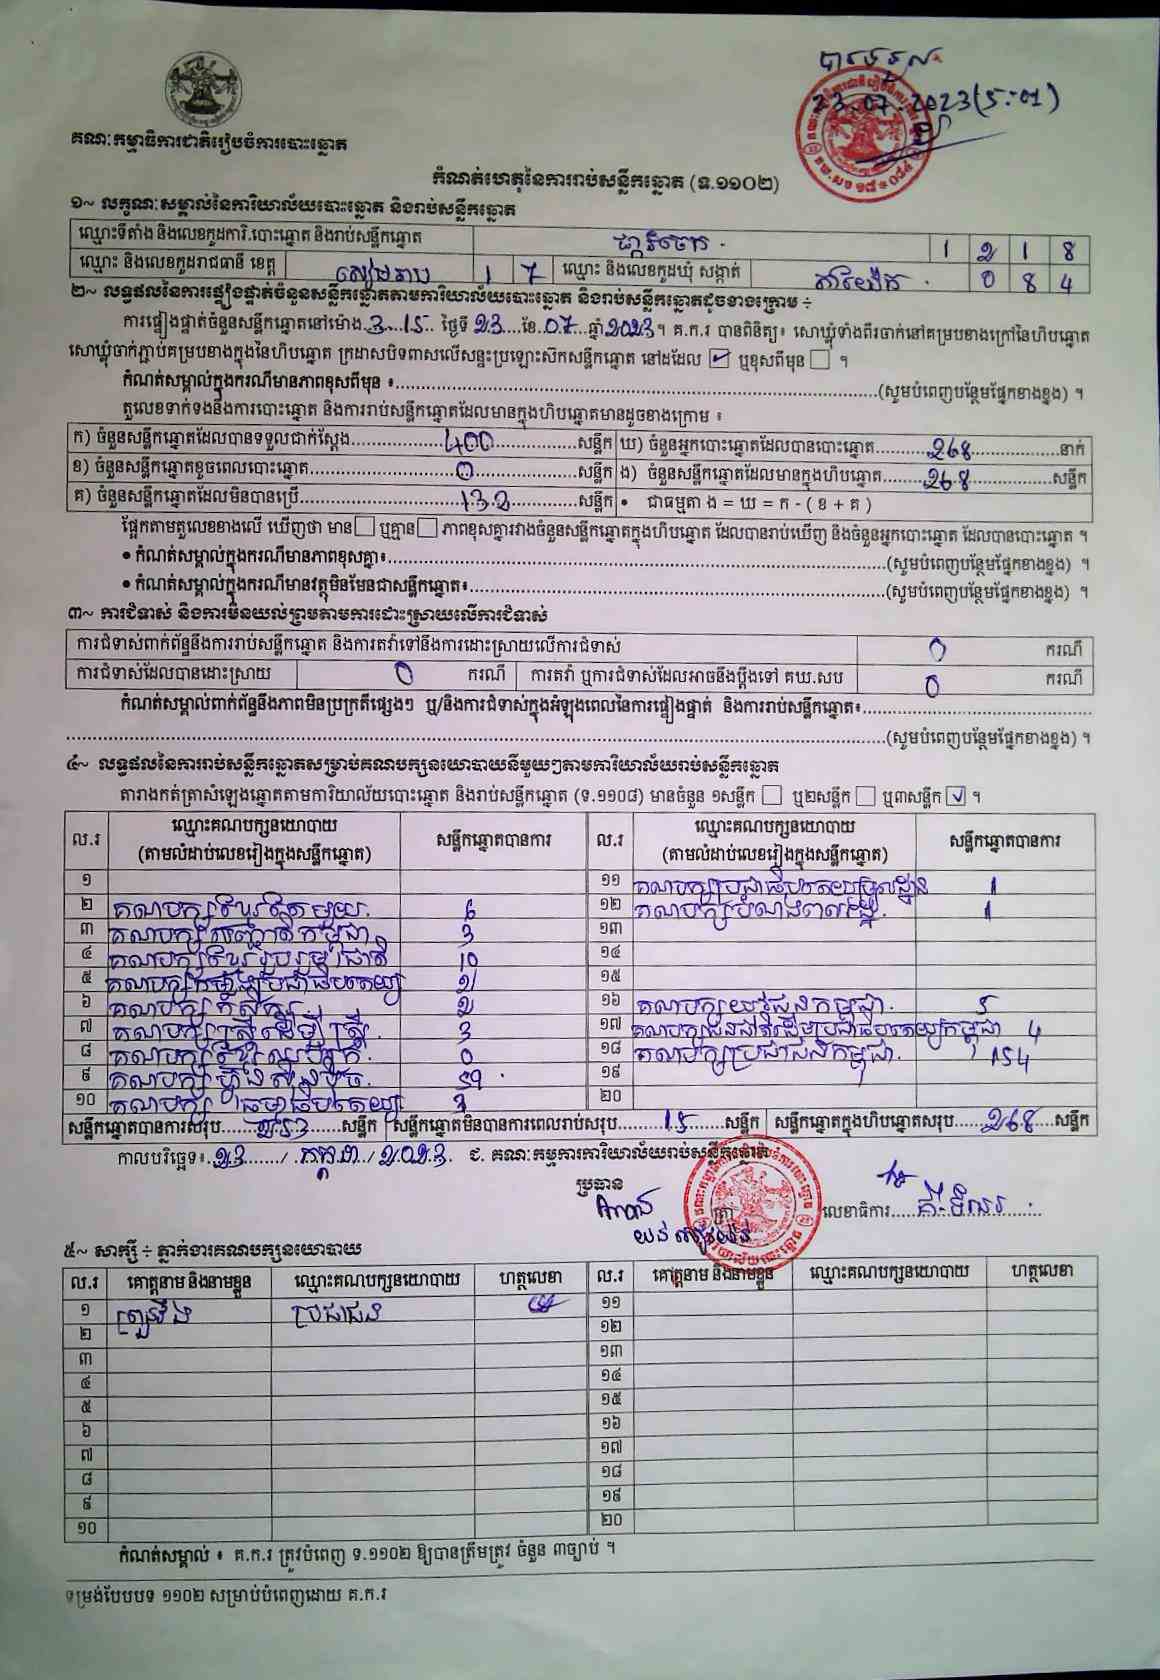 បានទទួល
23.07.2023
គណៈកម្មាធិការជាតិរៀបចំការបោះឆ្នោត
កំណត់ហេតុនៃការរាប់សន្លឹកឆ្នោត (ទ.១១០២)
១~ លក្ខណៈសម្គាល់នៃការិយាល័យបោះឆ្នោត និងរាប់សន្លឹកឆ្នោត
ឈ្មោះទីតាំង និងលេខកូដការិ.បោះឆ្នោត និងរាប់សន្លឹកឆ្នោត 1 2 1 8
ឈ្មោះ និងលេខកូដរាជធានី ខេត្ត សៀមរាប 1 7 ឈ្មោះ និងលេខកូដឃុំ សង្កាត់ 0 8 4
២~ លទ្ធផលនៃការផ្ទៀងផ្ទាត់ចំនួនសន្លឹកឆ្នោតតាមការិយាល័យបោះឆ្នោត និងរាប់សន្លឹកឆ្នោតដូចខាងក្រោម ÷
ការផ្ទៀងផ្ទាត់ចំនួនសន្លឹកឆ្នោតនៅម៉ោង 3:15 ថ្ងៃទី 23 ខែ 07 ឆ្នាំ 2023។ គ.ក.រ បានពិនិត្យ៖ សោឃ្លុំទាំងពីរចាក់នៅគម្របខាងក្រៅនៃហិបឆ្នោត
សោឃ្លុំចាក់ភ្ជាប់គម្របខាងក្នុងនៃហិបឆ្នោត ក្រដាសបិទពាសលើសន្ទះប្រឡោះស៊កសន្លឹកឆ្នោត នៅដដែល ☑ ឬខុសពីមុន ☐ ។
កំណត់សម្គាល់ក្នុងករណីមានភាពខុសពីមុន ៖ (សូមបំពេញបន្ថែមផ្នែកខាងខ្នង) ។
តួលេខទាក់ទងនឹងការបោះឆ្នោត និងការរាប់សន្លឹកឆ្នោតដែលមានក្នុងហិបឆ្នោតមានដូចខាងក្រោម ៖
ក) ចំនួនសន្លឹកឆ្នោតដែលបានទទួលជាក់ស្តែង 400 សន្លឹក ឃ) ចំនួនអ្នកបោះឆ្នោតដែលបានបោះឆ្នោត 268 នាក់
ខ) ចំនួនសន្លឹកឆ្នោតខូចពេលបោះឆ្នោត 0 សន្លឹក ង) ចំនួនសន្លឹកឆ្នោតដែលមានក្នុងហិបឆ្នោត 268 សន្លឹក
គ) ចំនួនសន្លឹកឆ្នោតដែលមិនបានប្រើ 132 សន្លឹក • ជាធម្មតា ង = ឃ = ក - ( ខ + គ )
ផ្អែកតាមតួលេខខាងលើ ឃើញថា មាន ☐ ឬគ្មាន ☐ ភាពខុសគ្នារវាងចំនួនសន្លឹកឆ្នោតក្នុងហិបឆ្នោត ដែលបានរាប់ឃើញ និងចំនួនអ្នកបោះឆ្នោត ដែលបានបោះឆ្នោត ។
• កំណត់សម្គាល់ក្នុងករណីមានភាពខុសគ្នា៖ (សូមបំពេញបន្ថែមផ្នែកខាងខ្នង) ។
• កំណត់សម្គាល់ក្នុងករណីមានវត្ថុមិនមែនជាសន្លឹកឆ្នោត៖ (សូមបំពេញបន្ថែមផ្នែកខាងខ្នង) ។
៣~ ការជំទាស់ និងការមិនយល់ព្រមតាមការដោះស្រាយលើការជំទាស់
ការជំទាស់ពាក់ព័ន្ធនឹងការរាប់សន្លឹកឆ្នោត និងការតវ៉ាទៅនឹងការដោះស្រាយលើការជំទាស់ 0 ករណី
ការជំទាស់ដែលបានដោះស្រាយ 0 ករណី ការតវ៉ា ឬការជំទាស់ដែលអាចនឹងប្តឹងទៅ គឃ.សប 0 ករណី
កំណត់សម្គាល់ពាក់ព័ន្ធនឹងភាពមិនប្រក្រតីផ្សេងៗ ឬ/និងការជំទាស់ក្នុងអំឡុងពេលនៃការផ្ទៀងផ្ទាត់ និងការរាប់សន្លឹកឆ្នោត៖
(សូមបំពេញបន្ថែមផ្នែកខាងខ្នង) ។
៤~ លទ្ធផលនៃការរាប់សន្លឹកឆ្នោតសម្រាប់គណបក្សនយោបាយនីមួយៗតាមការិយាល័យរាប់សន្លឹកឆ្នោត
តារាងកត់ត្រាសំឡេងឆ្នោតតាមការិយាល័យបោះឆ្នោត និងរាប់សន្លឹកឆ្នោត (ទ.១១០៨) មានចំនួន ១សន្លឹក ☐ ឬ២សន្លឹក ☐ ឬ៣សន្លឹក ☑ ។
ល.រ ឈ្មោះគណបក្សនយោបាយ (តាមលំដាប់លេខរៀងក្នុងសន្លឹកឆ្នោត) សន្លឹកឆ្នោតបានការ ល.រ ឈ្មោះគណបក្សនយោបាយ (តាមលំដាប់លេខរៀងក្នុងសន្លឹកឆ្នោត) សន្លឹកឆ្នោតបានការ
១ ១១ គណបក្សប្រជាធិបតេយ្យមូលដ្ឋាន 1
២ គណបក្សខ្មែរតែមួយ 6 ១២ គណបក្ស 1
៣ គណបក្សសញ្ជាតិកម្ពុជា 3 ១៣
៤ គណបក្សខ្មែររួបរួមជាតិ 10 ១៤
៥ គណបក្សកម្លាំងប្រជាធិបតេយ្យ 2 ១៥
៦ គណបក្សកសិករ 2 ១៦ គណបក្សយុវជនកម្ពុជា 5
៧ គណបក្សស្ត្រីដើម្បីស្ត្រី 3 ១៧ គណបក្សជនជាតិដើមប្រជាធិបតេយ្យកម្ពុជា 4
៨ គណបក្សខ្មែរឈប់ក្រ 0 ១៨ គណបក្សប្រជាជនកម្ពុជា 154
៩ គណបក្សហ្វ៊ុនស៊ិនប៉ិច 59 ១៩
១០ គណបក្សធម្មាធិបតេយ្យ 3 ២០
សន្លឹកឆ្នោតបានការសរុប 253 សន្លឹក សន្លឹកឆ្នោតមិនបានការពេលរាប់សរុប 15 សន្លឹក សន្លឹកឆ្នោតក្នុងហិបឆ្នោតសរុប 268 សន្លឹក
កាលបរិច្ឆេទ៖ 23 / កក្កដា / 2023 ជ. គណៈកម្មការការិយាល័យរាប់សន្លឹកឆ្នោត
ប្រធាន
ត្រា លេខាធិការ
៥~ សាក្សី ÷ ភ្នាក់ងារគណបក្សនយោបាយ
ល.រ គោត្តនាម និងនាមខ្លួន ឈ្មោះគណបក្សនយោបាយ ហត្ថលេខា ល.រ គោត្តនាម និងនាមខ្លួន ឈ្មោះគណបក្សនយោបាយ ហត្ថលេខា
១ ប្រជាជន ១១
២ ១២
៣ ១៣
៤ ១៤
៥ ១៥
៦ ១៦
៧ ១៧
៨ ១៨
៩ ១៩
១០ ២០
កំណត់សម្គាល់ ៖ គ.ក.រ ត្រូវបំពេញ ទ.១១០២ ឱ្យបានត្រឹមត្រូវ ចំនួន ៣ច្បាប់ ។
ទម្រង់បែបបទ ១១០២ សម្រាប់បំពេញដោយ គ.ក.រ